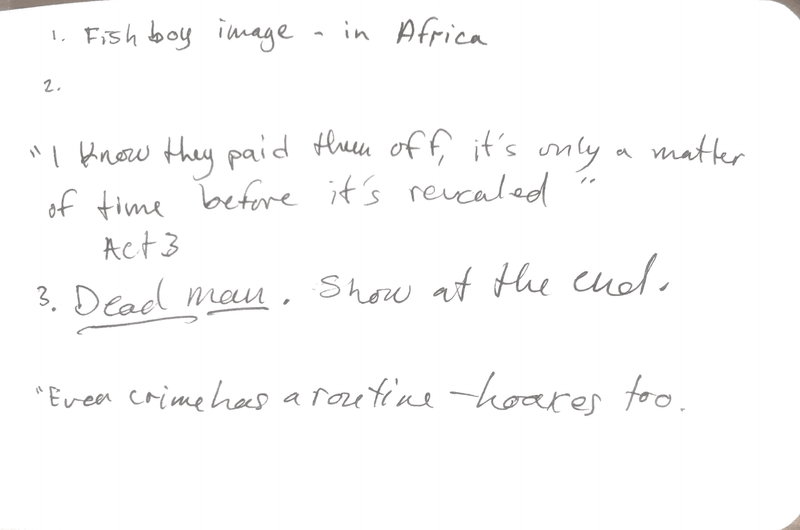 1. Fish boy image - in Africa
2.
"I know they paid them off, it's only a matter
of time before it's revealed"
Act 3
3. Dead man. Show at the end.
"Even crime has a routine - hoaxes too.